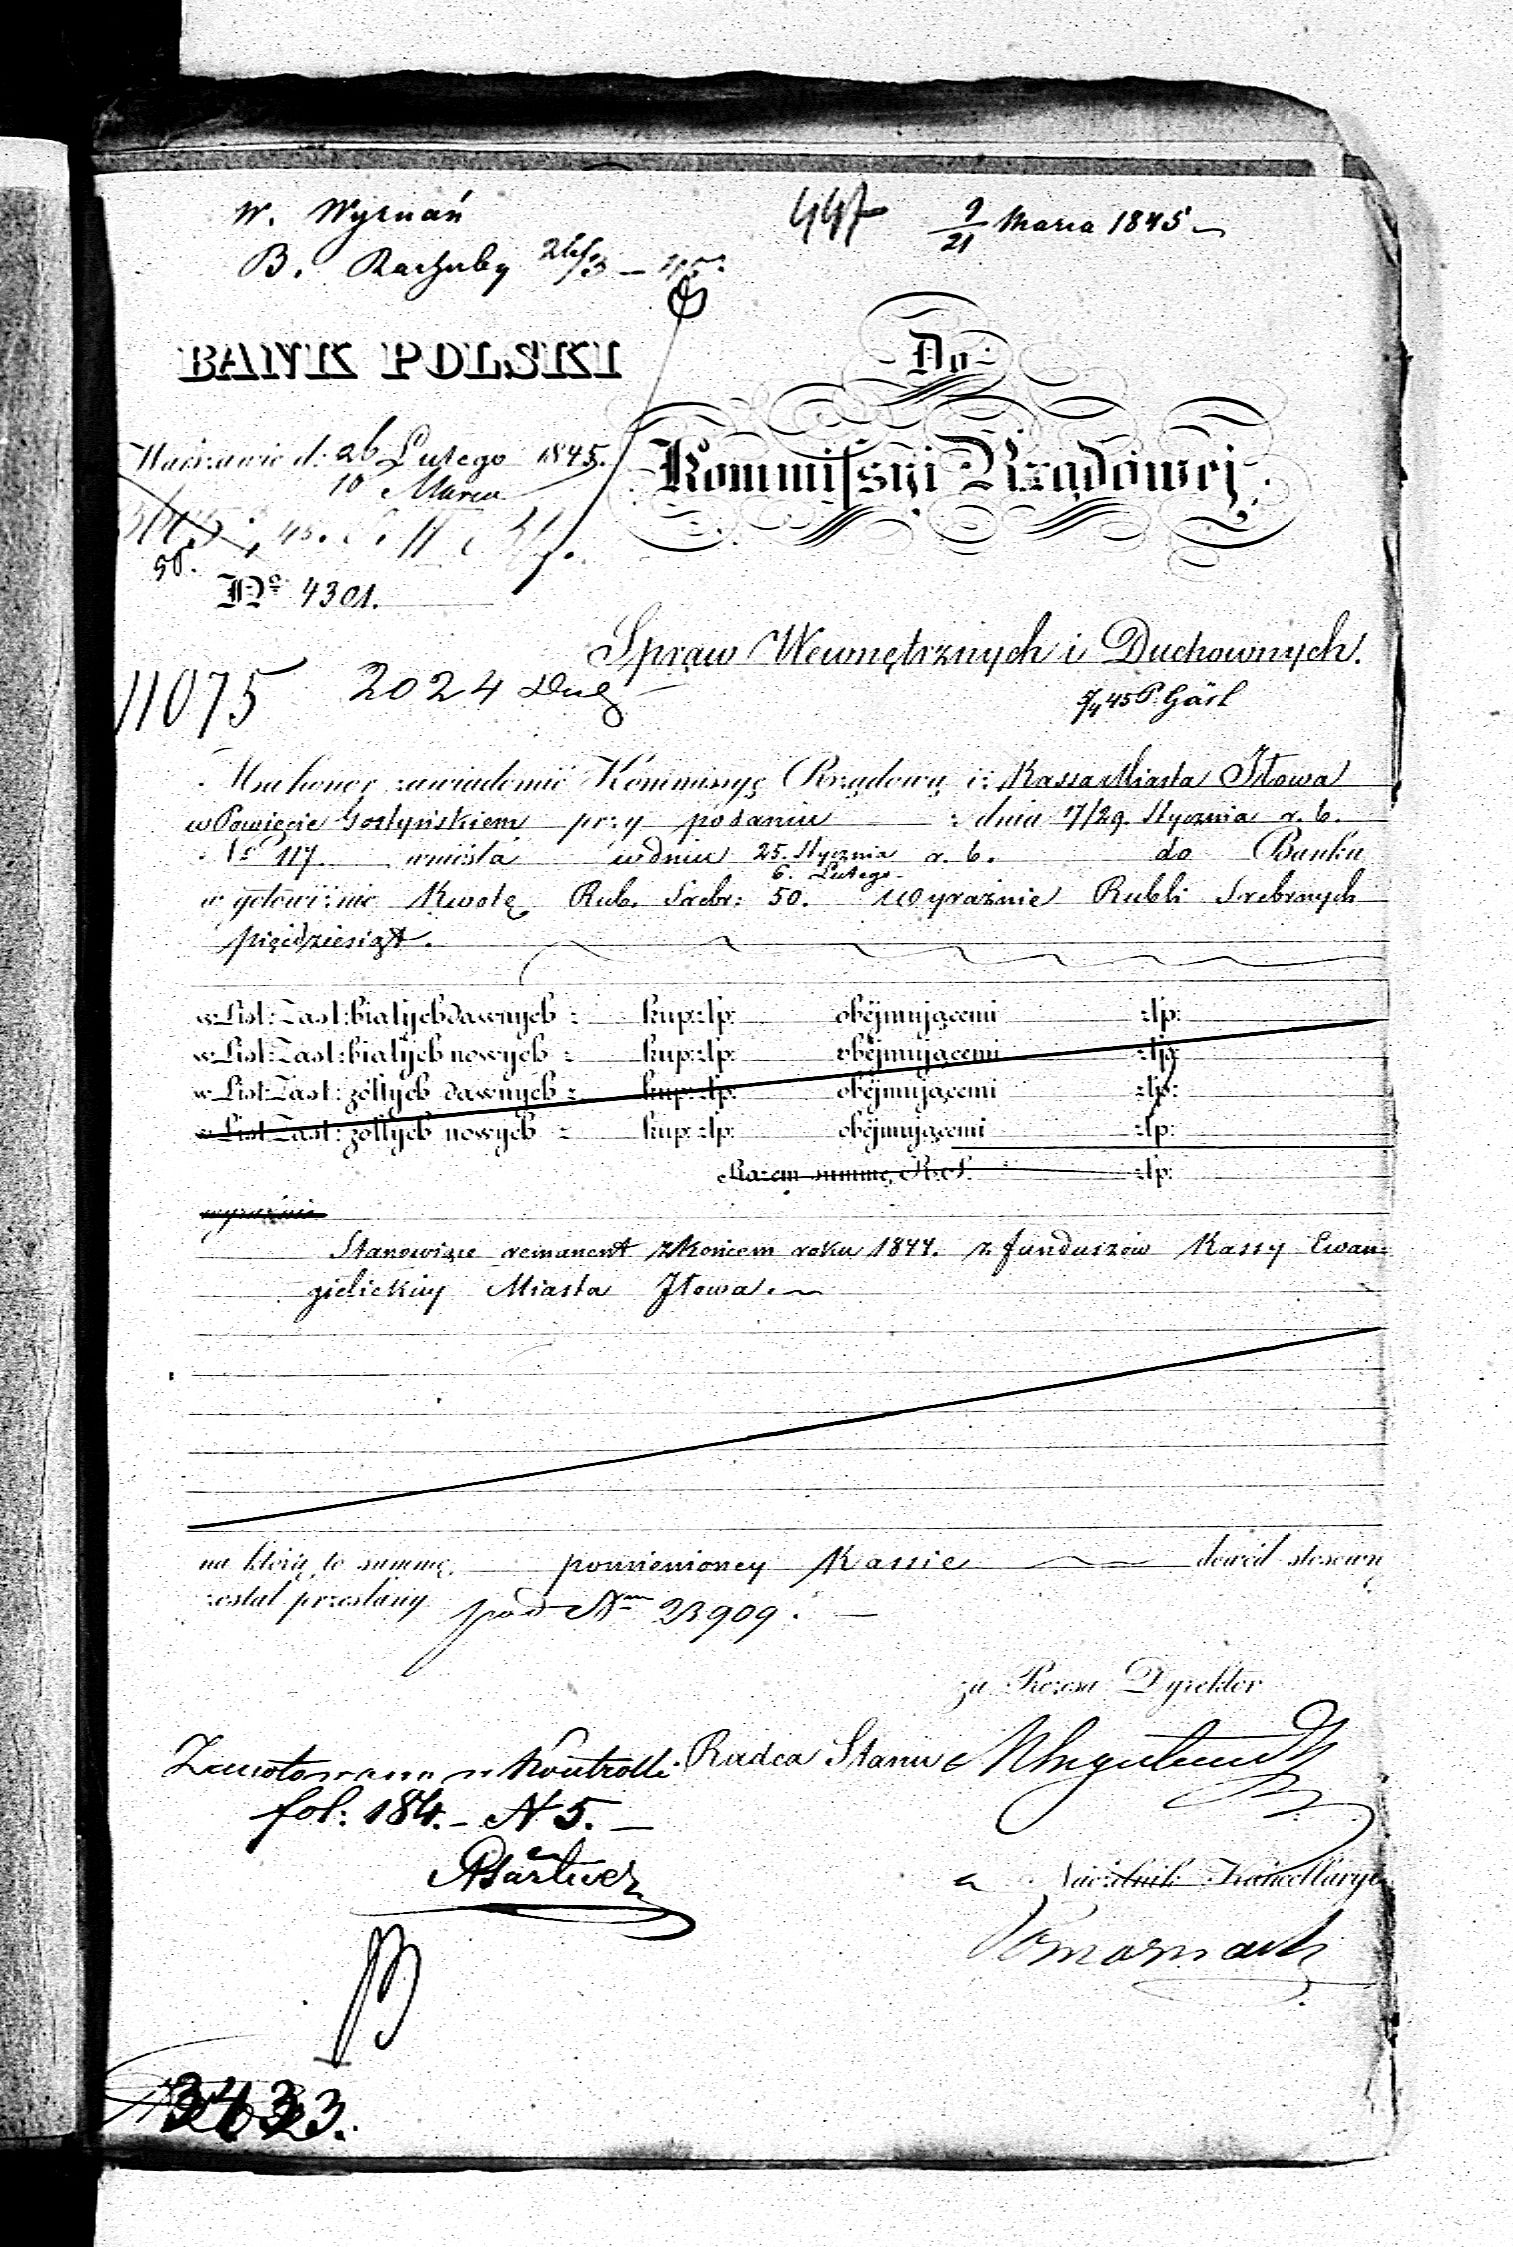 W. Wyznań
447
9/21 Marca 1845
B. Rachuby 24/3
BANK POLSKI
Do
Kommissyi Rządowej
Warszawie d: 26 Lutego 1845.
10 Marca
50.
Nº 4301.
Spraw Wewnętrznych i Duchownych.
11075
2024
Ma honor zawiadomić Kommissyę Rządową iż Kassa Miasta Iłowa
w Powiecie Gostyńskiem przy podaniu z dnia 17/29 Stycznia r. b.
Nº 117. wniosła w dniu 25. Stycznia r. b. do Banku
6. Lutego
w gotowiźnie Kwotę Rub. Srebr: 50. wyraźnie Rubli Srebrnych
pięćdziesiąt.
w List: Zast: białych dawnych z kup: złp: obéjmującemi złp:
w List: Zast: białych nowych z kup: złp: obéjmującemi złp:
w List: Zast: żółtych dawnych z kup: złp: obéjmującemi złp:
w List: Zast: żółtych nowych z kup: złp: obéjmującemi złp:
Razem summę R. S. złp:
wyraźnie
Stanowiące remanent z końcem roku 1844. z funduszów Kassy Ewan-
gielickiey Miasta Iłowa.
na którą to summę pomienioney Kassie dowód stosowny
został przesłany pod Nrm 23909.
za Prezesa Dyrektor
Radca Stanu
Zanotowano w Kontrolli
fol: 184. - N 5. -
Naczelnik Kancellaryi